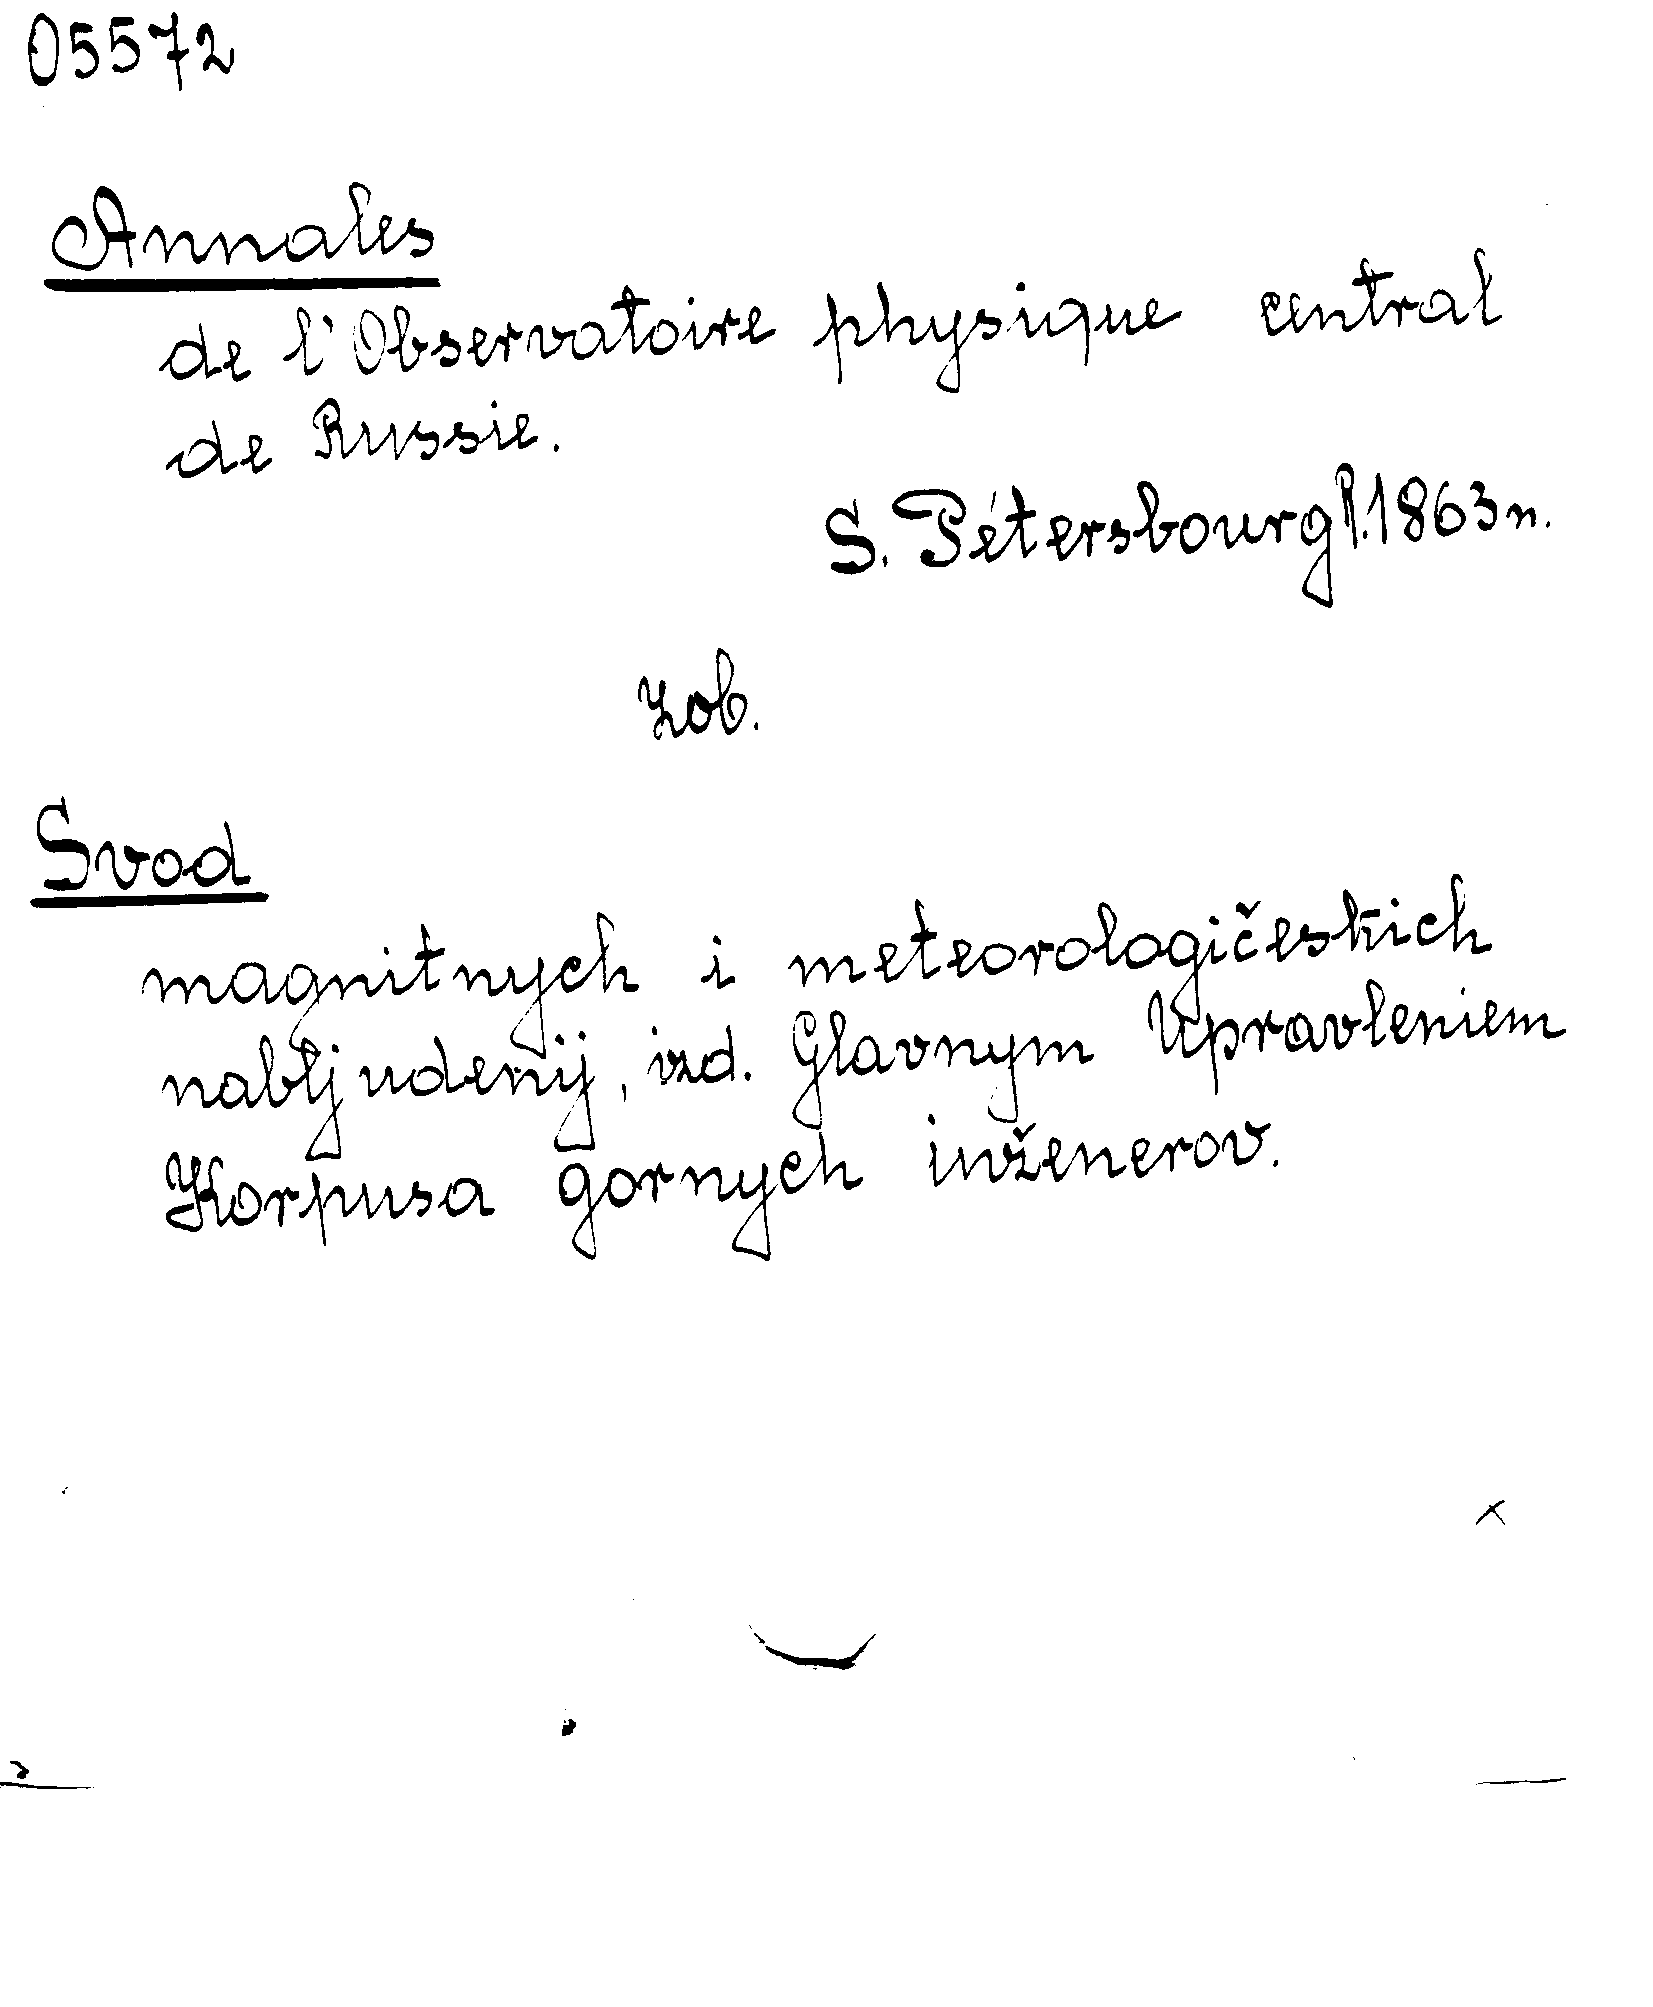 05572
Annales
de l'Observatoire physique central
de Russie.
S. Pétersbourg R.1863 n.
Zob.
Svod
magnitnych i meteorologičeskich
nabljudenij, izd. Glavnym Upravleniem
Korpusa gornych inženerov.